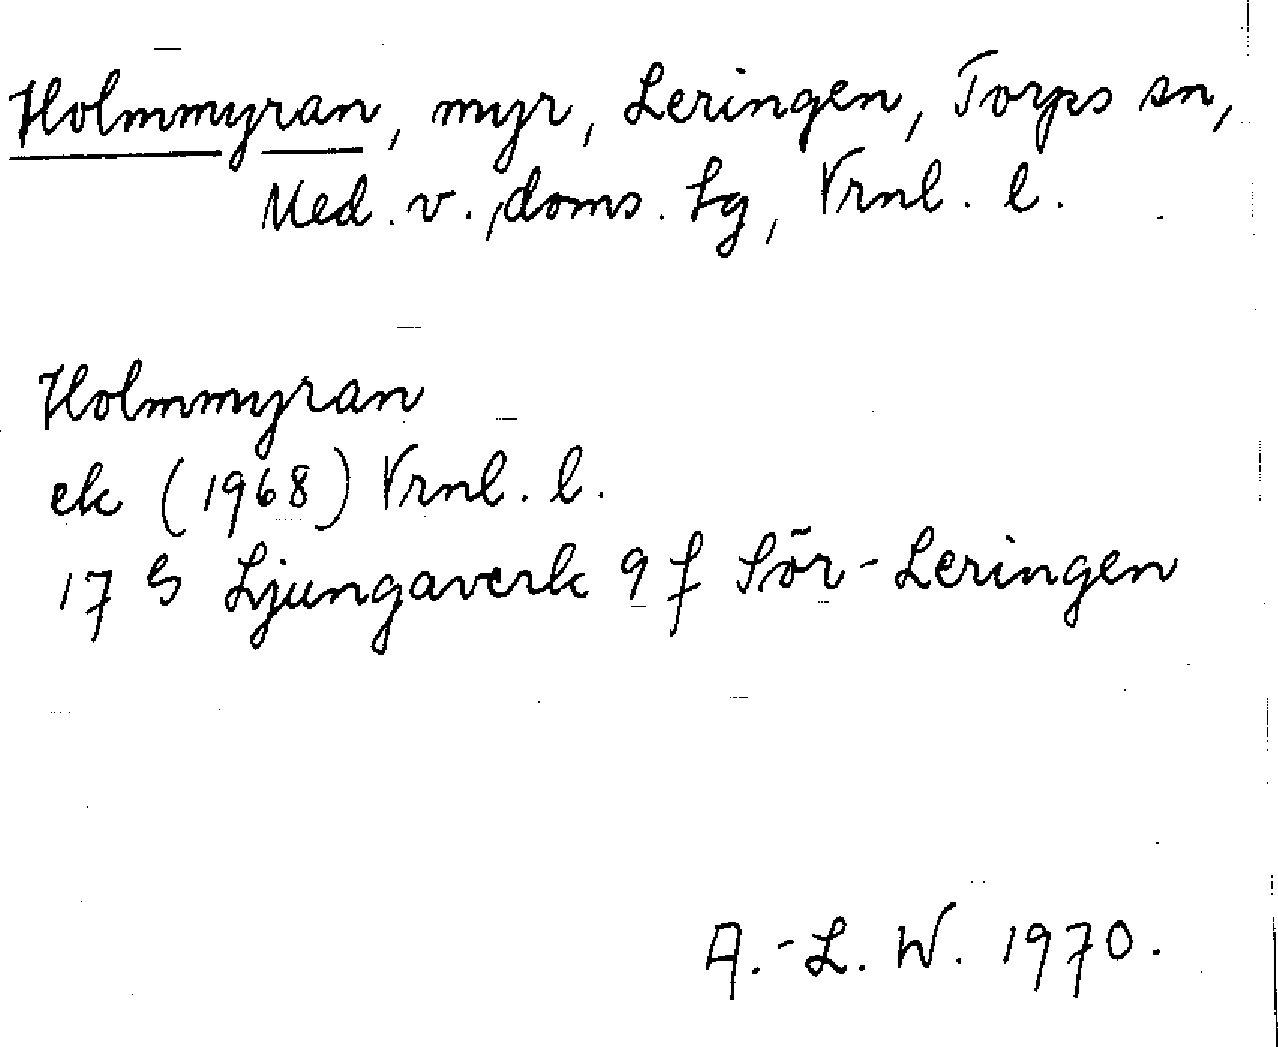 Holmmyran, myr, Leringen, Torps sn,
Med. v. doms. sg, Vrnl. l.
Holmmyran
ek (1968) Vrnl. l.
17 G Ljungaverk 9 f Sör-Leringen
A.-L. W. 1970.